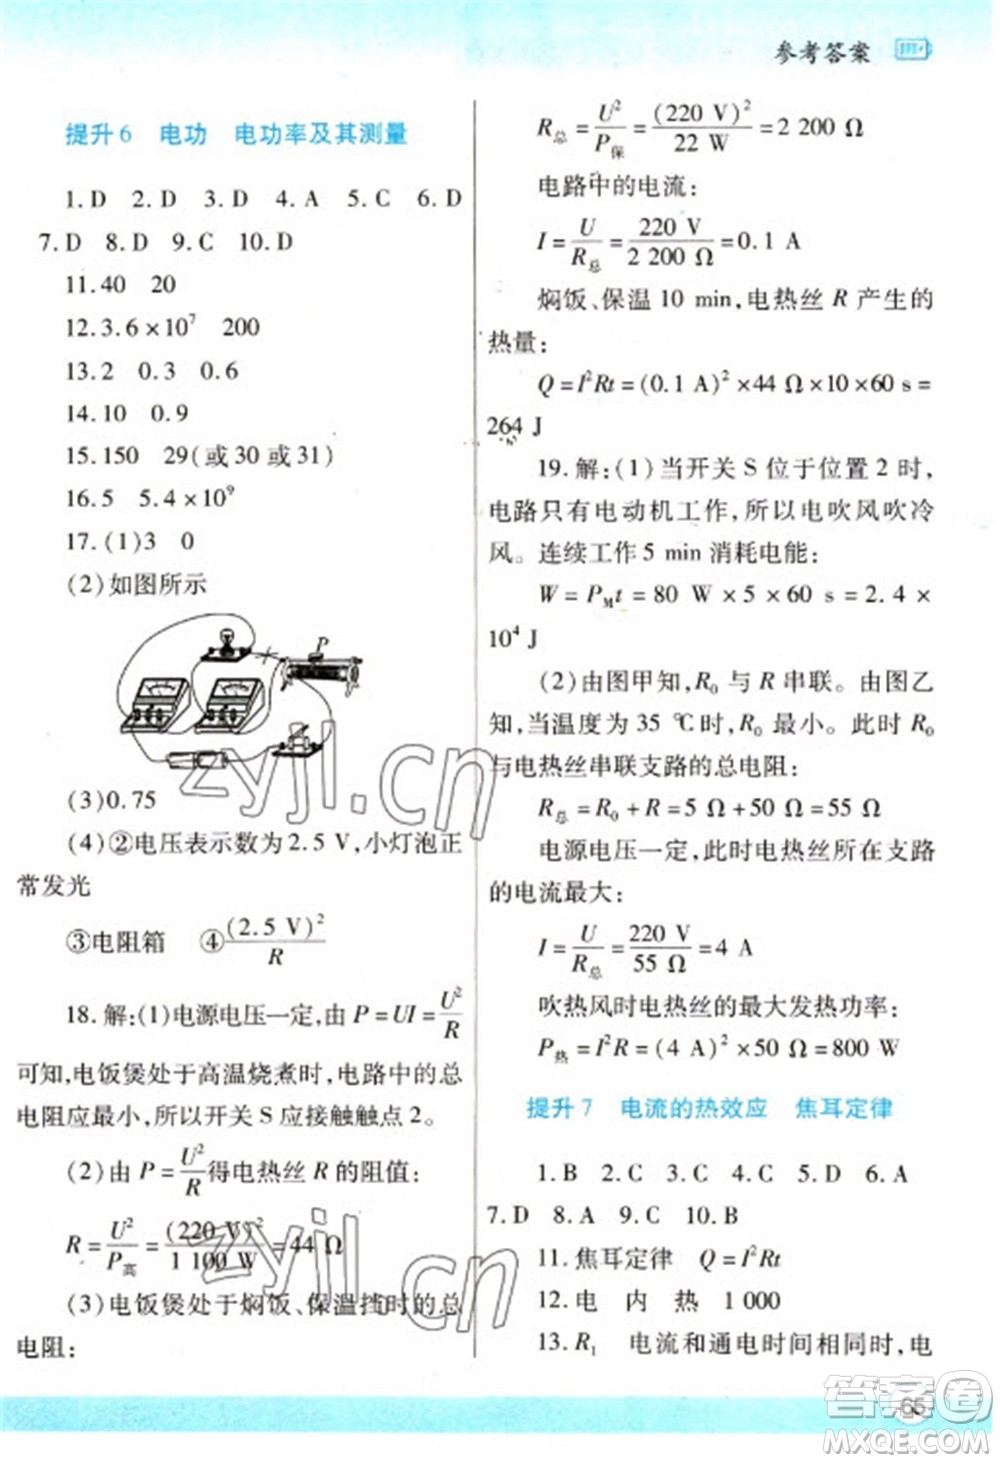 参考答案
提升6 电功 电功率及其测量
1.D 2.D 3.D 4.A 5.C 6.D
7.D 8.D 9.C 10.D
11.40 20
12.3.6×10⁷ 200
13.2 0.3 0.6
14.10 0.9
15.150 29(或30或31)
16.5 5.4×10⁹
17.(1)3 0
(2)如图所示
P
(3)0.75
(4)②电压表示数为2.5 V,小灯泡正
常发光
③电阻箱 ④(2.5 V)²/R
18.解:(1)电源电压一定,由P=UI=U²/R
可知,电饭煲处于高温烧煮时,电路中的总
电阻应最小,所以开关S应接触触点2。
(2)由P=U²/R得电热丝R的阻值:
R=U²/P高=(220 V)²/1 100 W=44 Ω
(3)电饭煲处于焖饭、保温挡时的总
电阻:
R总=U²/P保=(220 V)²/22 W=2 200 Ω
电路中的电流:
I=U/R总=220 V/2 200 Ω=0.1 A
焖饭、保温10 min,电热丝R产生的
热量:
Q=I²Rt=(0.1 A)²×44 Ω×10×60 s=
264 J
19.解:(1)当开关S位于位置2时,
电路只有电动机工作,所以电吹风吹冷
风。连续工作5 min消耗电能:
W=P_M t=80 W×5×60 s=2.4×
10⁴ J
(2)由图甲知,R₀与R串联。由图乙
知,当温度为35 ℃时,R₀最小。此时R₀
与电热丝串联支路的总电阻:
R总=R₀+R=5 Ω+50 Ω=55 Ω
电源电压一定,此时电热丝所在支路
的电流最大:
I=U/R总=220 V/55 Ω=4 A
吹热风时电热丝的最大发热功率:
P热=I²R=(4 A)²×50 Ω=800 W
提升7 电流的热效应 焦耳定律
1.B 2.C 3.C 4.C 5.D 6.A
7.D 8.A 9.C 10.B
11.焦耳定律 Q=I²Rt
12.电 内 热 1 000
13.R₁ 电流和通电时间相同时,电
65
zyjl.cn
zyjl.cn
答案圈
MXQE.COM